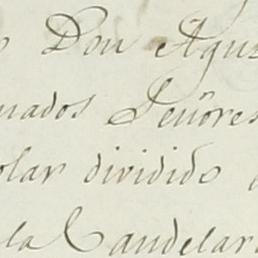 Don Agus
nados Señores
olar dividido
la Candelar